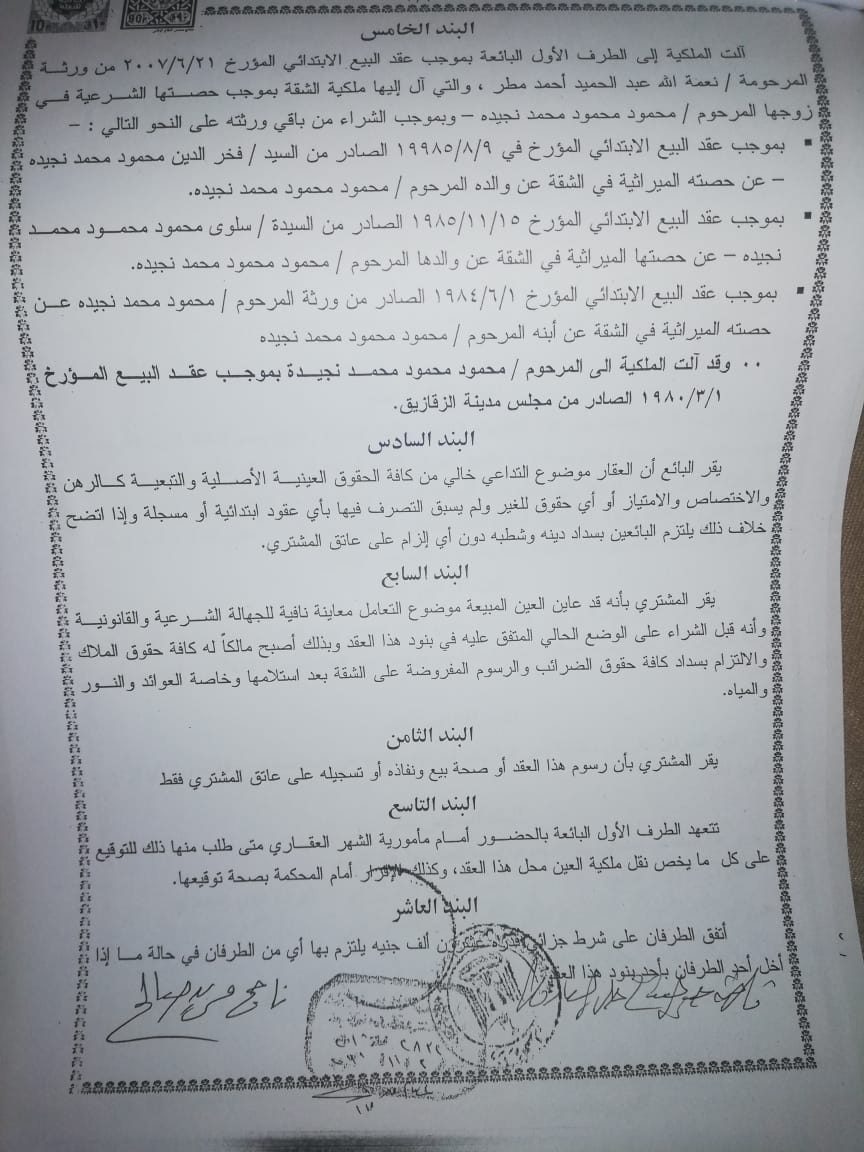 البند الخامس
آلت الملكية إلى الطرف الأول البائعة بموجب عقد البيع الابتدائي المؤرخ ٢٠٠٧/٦/٢١ من ورثة
المرحومة / نعمة الله عبد الحميد أحمد مطر ، والتي آل إليها ملكية الشقة بموجب حصتها الشرعية في
زوجها المرحوم / محمود محمود محمد نجيده – وبموجب الشراء من باقي ورثته على النحو التالي : –
▪ بموجب عقد البيع الابتدائي المؤرخ في ١٩٩٨٥/٨/٩ الصادر من السيد / فخر الدين محمود محمد نجيده
– عن حصته الميراثية في الشقة عن والده المرحوم / محمود محمود محمد نجيده.
▪ بموجب عقد البيع الابتدائي المؤرخ ١٩٨٥/١١/١٥ الصادر من السيدة / سلوى محمود محمود محمد
نجيده – عن حصتها الميراثية في الشقة عن والدها المرحوم / محمود محمود محمد نجيده.
▪ بموجب عقد البيع الابتدائي المؤرخ ١٩٨٤/٦/١ الصادر من ورثة المرحوم / محمود محمد نجيده عن
حصته الميراثية في الشقة عن أبنه المرحوم / محمود محمود محمد نجيده
٠٠ وقد آلت الملكية الى المرحوم / محمود محمود محمد نجيدة بموجب عقد البيع المؤرخ
١٩٨٠/٣/١ الصادر من مجلس مدينة الزقازيق.
البند السادس
يقر البائع أن العقار موضوع التداعي خالي من كافة الحقوق العينية الأصلية والتبعية كالرهن
والاختصاص والامتياز أو أي حقوق للغير ولم يسبق التصرف فيها بأي عقود ابتدائية أو مسجلة وإذا اتضح
خلاف ذلك يلتزم البائعين بسداد دينه وشطبه دون أي إلزام على عاتق المشتري.
البند السابع
يقر المشتري بأنه قد عاين العين المبيعة موضوع التعامل معاينة نافية للجهالة الشرعية والقانونية
وأنه قبل الشراء على الوضع الحالي المتفق عليه في بنود هذا العقد وبذلك أصبح مالكاً له كافة حقوق الملاك
والالتزام بسداد كافة حقوق الضرائب والرسوم المفروضة على الشقة بعد استلامها وخاصة العوائد والنور
والمياه.
البند الثامن
يقر المشتري بأن رسوم هذا العقد أو صحة بيع ونفاذه أو تسجيله على عاتق المشتري فقط
البند التاسع
تتعهد الطرف الأول البائعة بالحضور أمام مأمورية الشهر العقاري متى طلب منها ذلك للتوقيع
على كل ما يخص نقل ملكية العين محل هذا العقد، وكذلك الإقرار أمام المحكمة بصحة توقيعها.
البند العاشر
أتفق الطرفان على شرط جزائي قدره عشرون ألف جنيه يلتزم بها أي من الطرفان في حالة ما إذا
أخل أحد الطرفان بأحد بنود هذا العقد